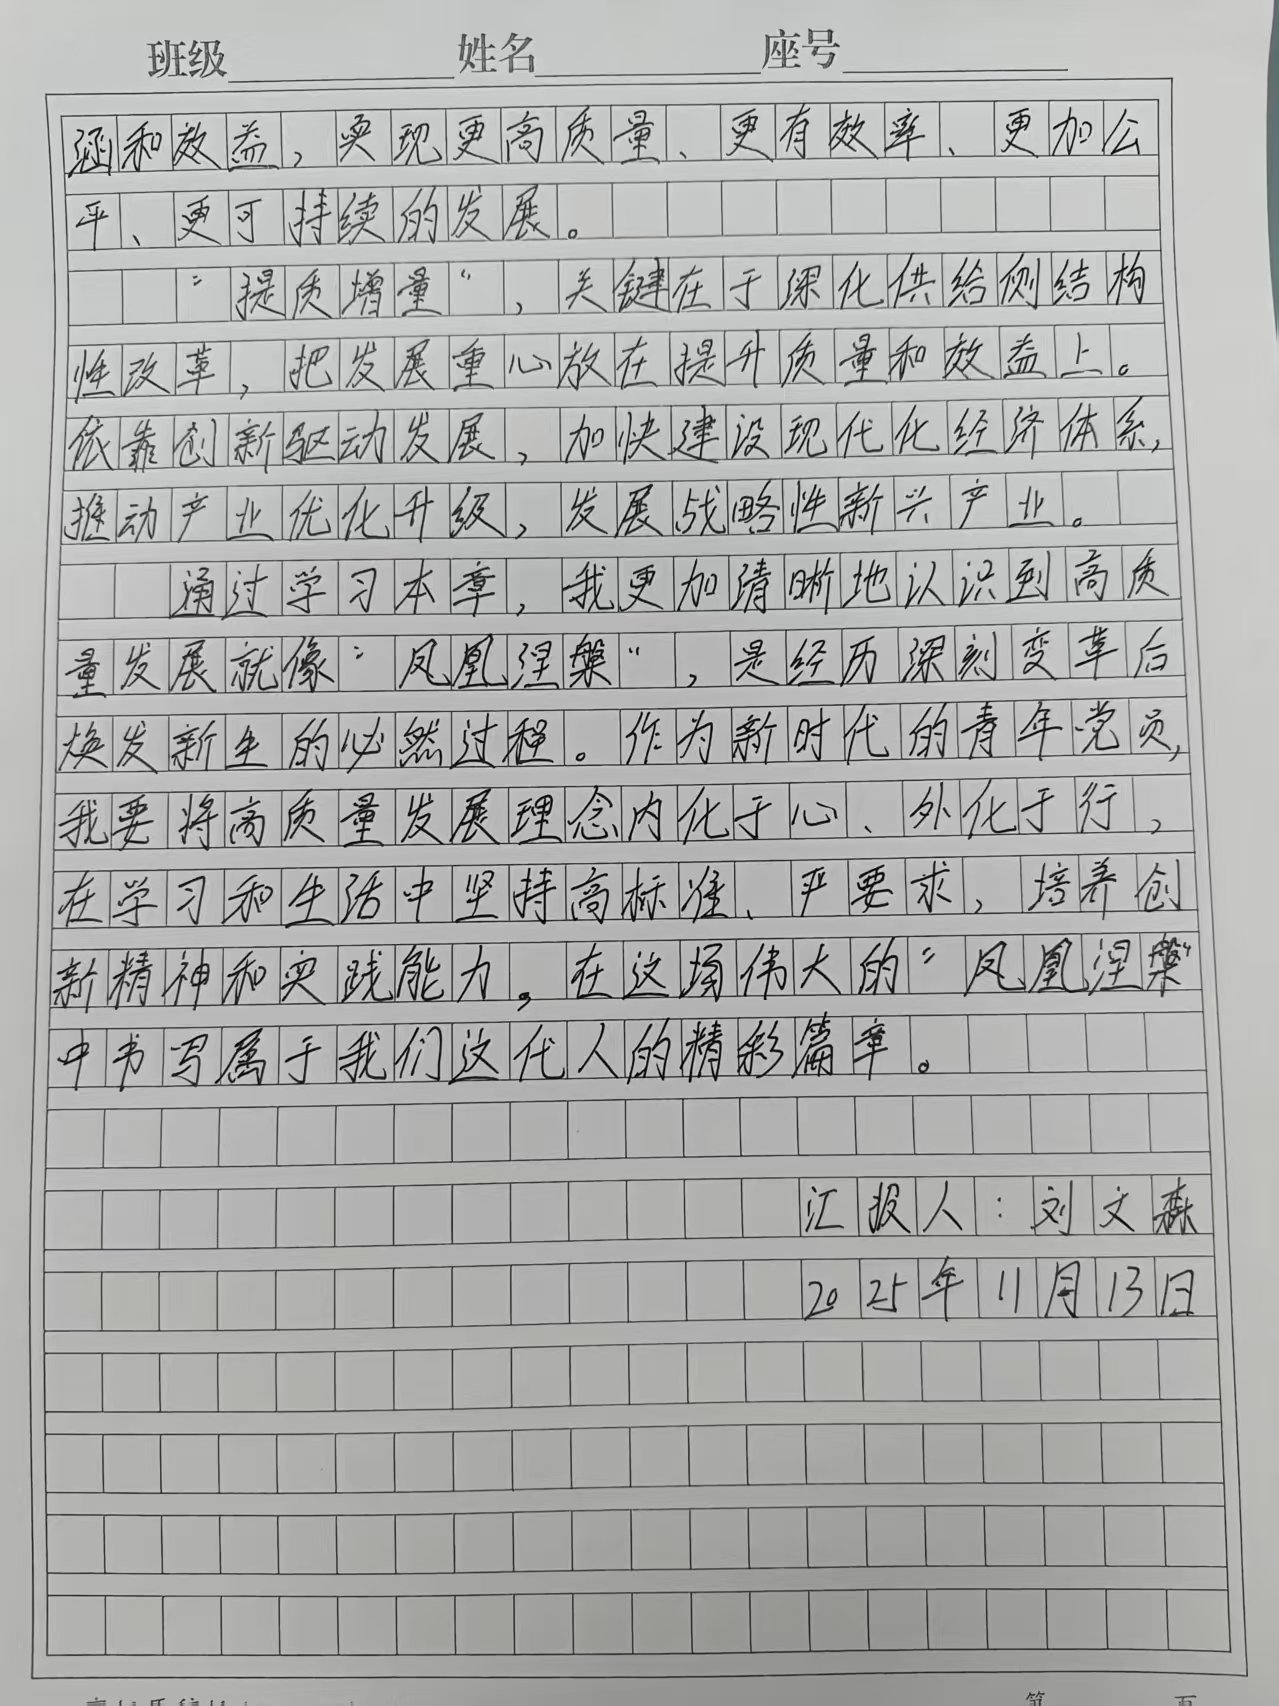 班级 姓名 座号
涵和效益，实现更高质量、更有效率、更加公
平、更可持续的发展。
“提质增量”，关键在于深化供给侧结构
性改革，把发展重心放在提升质量和效益上。
依靠创新驱动发展，加快建设现代化经济体系，
推动产业优化升级，发展战略性新兴产业。
通过学习本章，我更加清晰地认识到高质
量发展就像“凤凰涅槃”，是经历深刻变革后
焕发新生的必然过程。作为新时代的青年党员，
我要将高质量发展理念内化于心、外化于行，
在学习和生活中坚持高标准、严要求，培养创
新精神和实践能力。在这场伟大的“凤凰涅槃”
中书写属于我们这代人的精彩篇章。
汇报人：刘文森
2025年11月13日
第 页